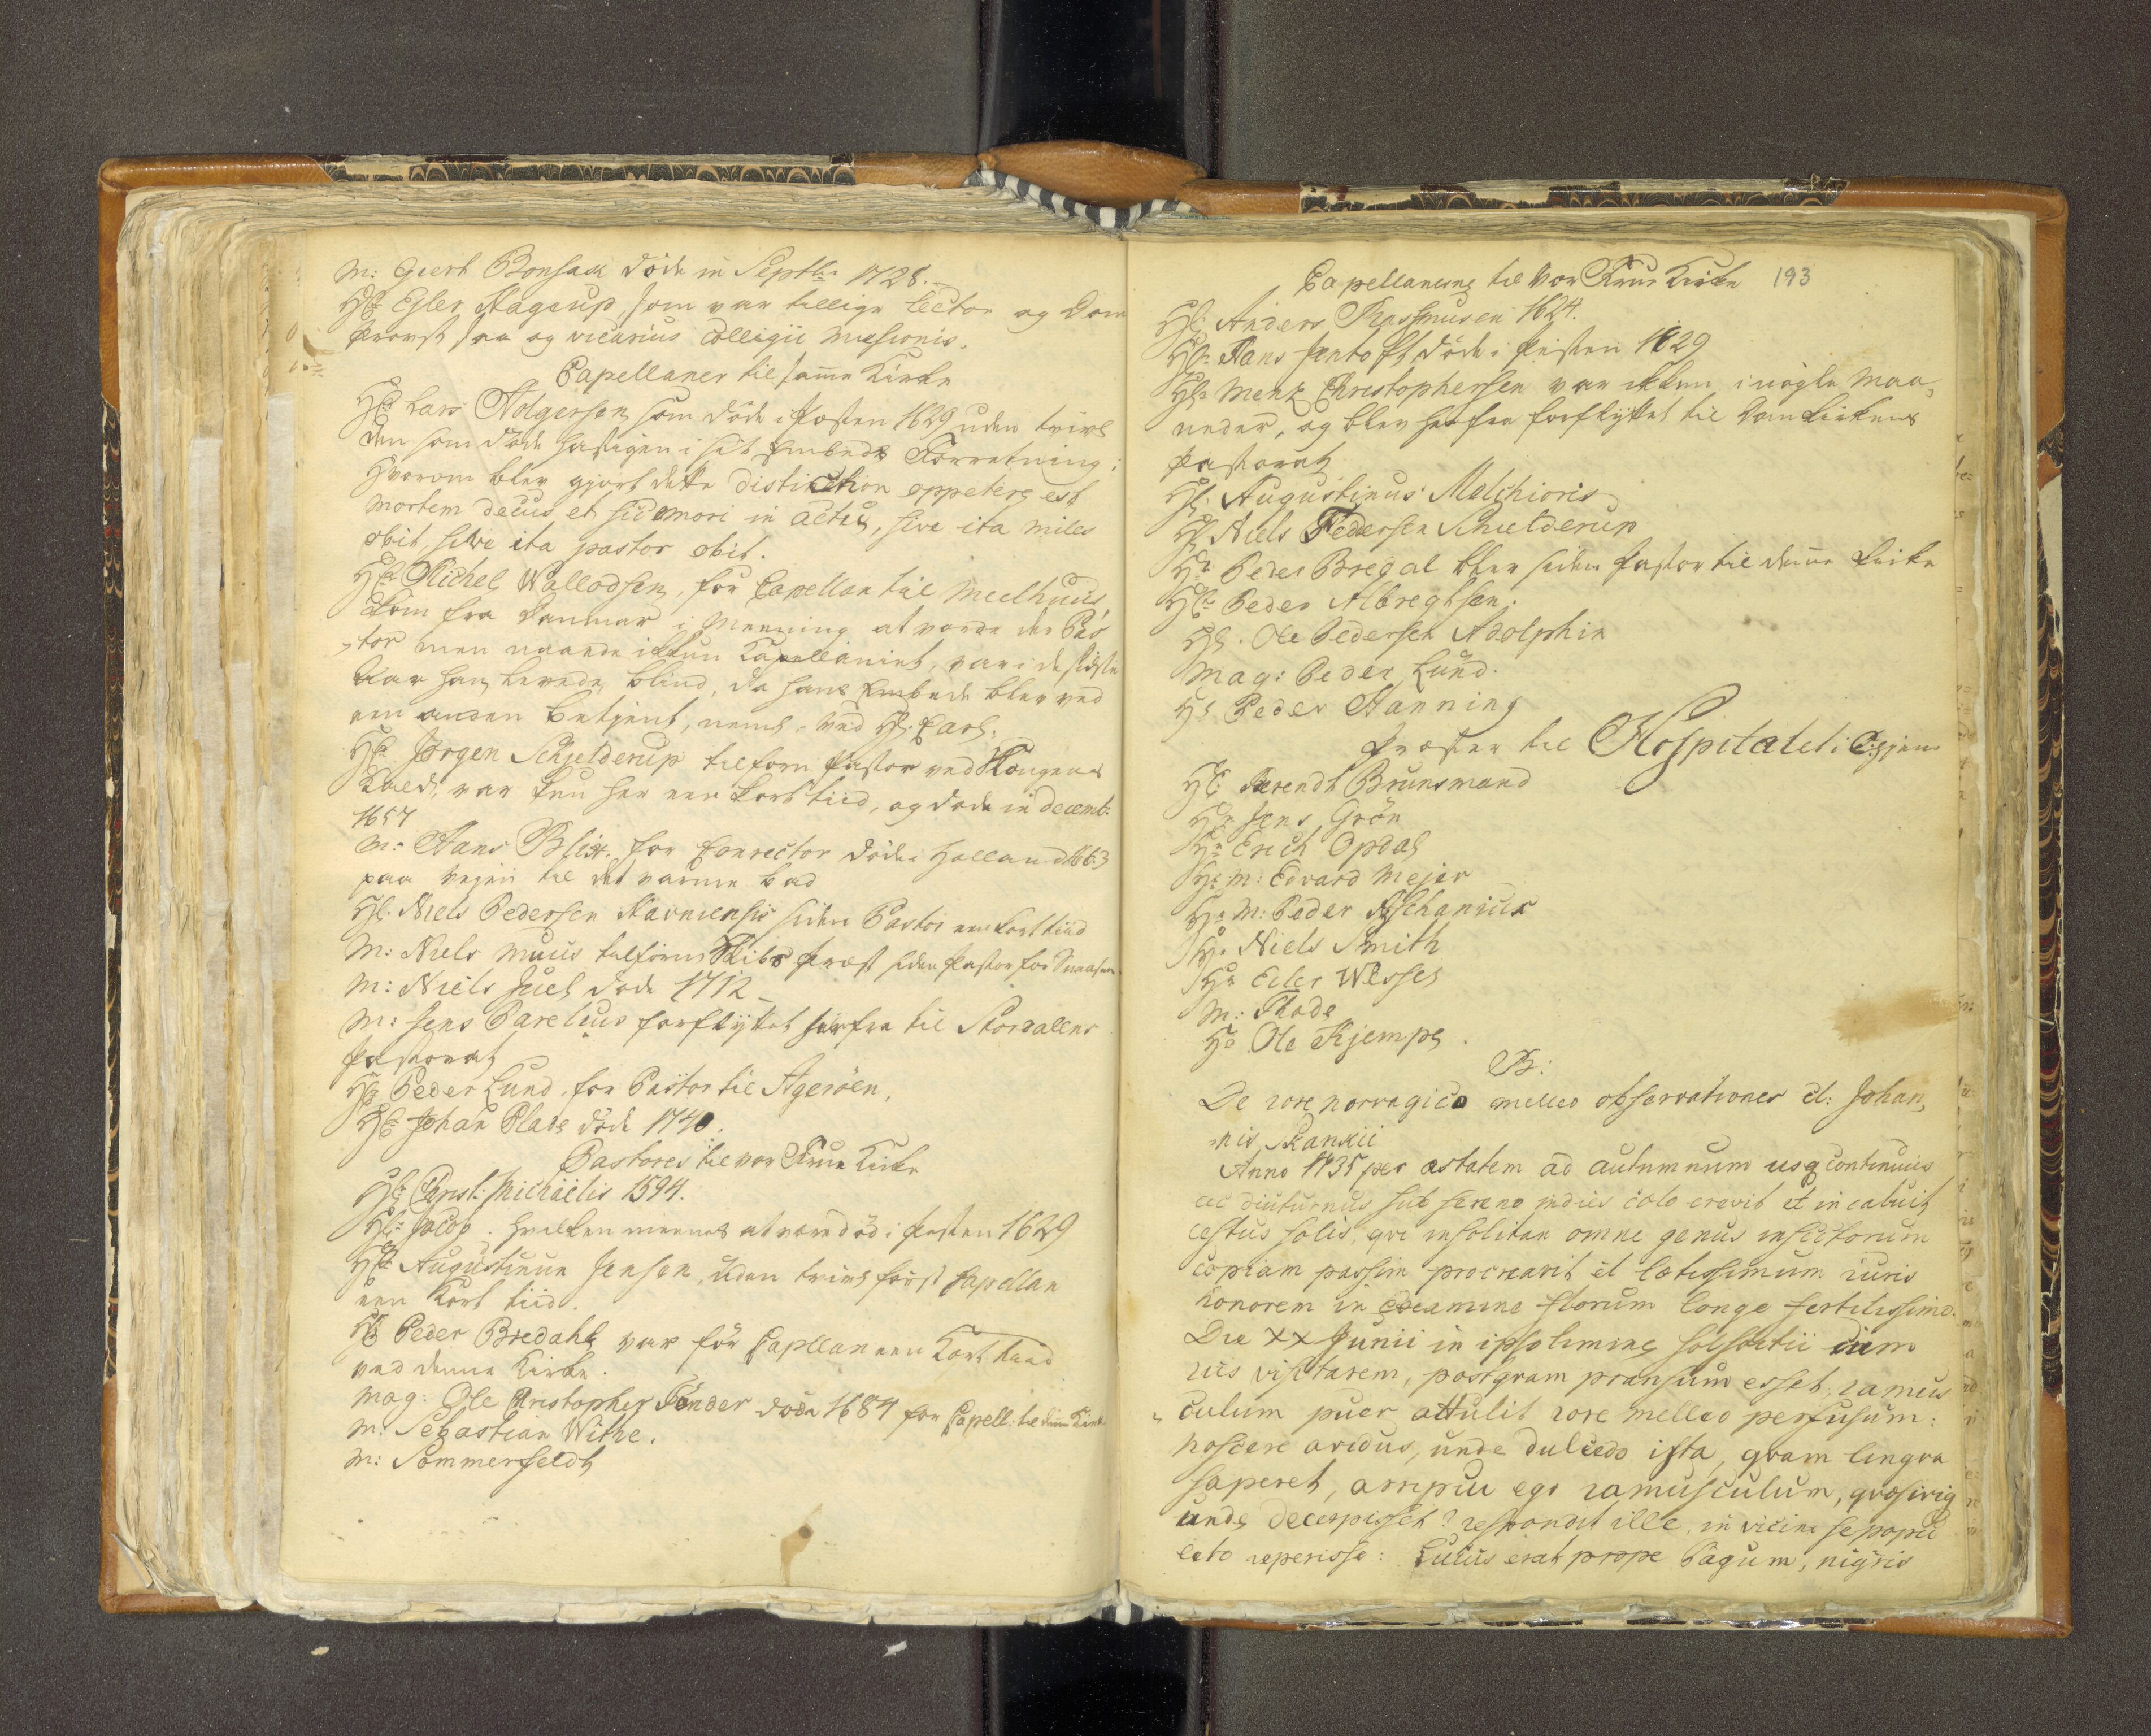 M: Geert Bonsach døde in Septbr 1728.
Hr Eyler Hagerup, som var tillige Lector og Dom
Provst saa og vicarius Collegii Missionis.
Capellaner til samme Kirke
Hr Lars Holgersen som døde i Pesten 1629 uden tvivl
den som døde hastigen i sit Embeds Forretning;
hvorom blev gjort dette distichon oppetere est
mortem decus et sic mori in actu, sive ita miles
obit, sive ita pastor obit.
Hr Michel Wallodsen, for Capellan til Meelhuus,
kom fra Danmark i Meening at vorde der Pas
tor men naaede ikkun Capellaniet, var i de sidste
Aar han levede blind, da hans Embede blev ved
een anden betjent, neml: ved Hr. Carl.
Hr Jørgen Schjelderup tilforn Pastor ved Kongens
var kun her een kort tiid, og døde in Decemb:
1657
M: Hans Blix, for Conrector døde i Holland 1663
paa Vejen til det varme bad
Hr. Niels Pedersen Havniensis siden Pastor een kort tiid
M: Niels Muus tilforn Skibs Præst siden Pastor for Snaasen
M: Niels Juel døde 1712
M: Jens Parelius forflyttet herfra til Stordalens
Pastorat
Hr Peder Lund, for Pastor til Agerøen,
Hr Johan Plade døde 1740.
Pastores til vor Frue Kirke
Hr Christ: Michaelis 1594.
Hr Jacob. hvilken meenes at være død i Pesten 1629
Hr Augustinum Jensen, uden tvivl først Capellan
een Kort tiid.
Hr Peder Bredahl var før Capellan een Kort tiid
ved denne Kirke.
Mag: Ole Christopher Tønder døde 1684 for Capell: til denne Kirke
M: Sebastian Withe.
M: Sommerfeldt
Capellanerne til Vor Frue Kirke 193
Hr. Anders Rasmusen 1624.
Hr Hans Jentoft døde i Pesten 1629
Hr Mentz Christophersen var ikkun i nogle Maa,
neder, og blev herfra forflyttet til Dom Kirkens
Pastorat
Hr. Augustinus Melchioris
Hr Niels Pedersen Schielderup
Hr Peder Bregal blev siden Pastor til denne Kirke
Hr Peder Albreghsen.
Hr. Ole Pedersen Adolphin
Mag: Peder Lund.
Hr Peder Hanning
Præster til Hospitalet i
Hr Berendt Brunsmand
Hr Jens Grön
Hr Erich Opdal
Hr M: Edvard Mejer
Hr M: Peder Aschanius
Hr Niels Smith
Hr Eiler Wessel
M: Rode
Hr Ole Kjempe.
B:
De rore norvagico melleo observationes cl: Johan,
nis Ramii
Anno 1735 per æstatem ad autumnum usq continuus
ac diuturnus sub sereno indies coelo crevit et incaluit
æstus solis, qvi insolitam omne genus insectorum
copiam passim procreavit et lætissimum ruris
honorem in examine florum longe fertilissimo.
Die XX Junii in ipso limine solstitii cum
rus visitarem, postqvam pransum esset, ramus
culum puer attulit rore melleo perfusum:
noscere avidus, unde dulcedo ista, qvam lingva
saperet, arripui ego ramusculum, qvæsiviq
unde decerpisset? respondit ille, in vicino se popu
leto reperisse: Lucus erat prope Pagum, nigris